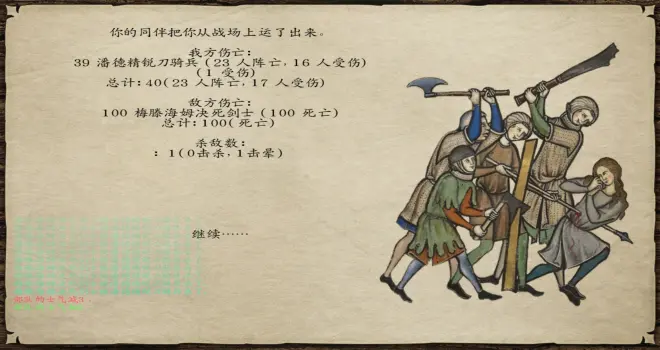 你的同伴把你从战场上运了出来。
我方伤亡：
39 潘德精锐刀骑兵 (23 人阵亡, 16 人受伤)
(1 受伤)
总计: 40(23 人阵亡, 17 人受伤)
敌方伤亡：
100 梅滕海姆决死剑士 (100 死亡)
总计:100(死亡)
杀敌数：
: 1(0击杀, 1击晕)
继续……
部队的士气减3